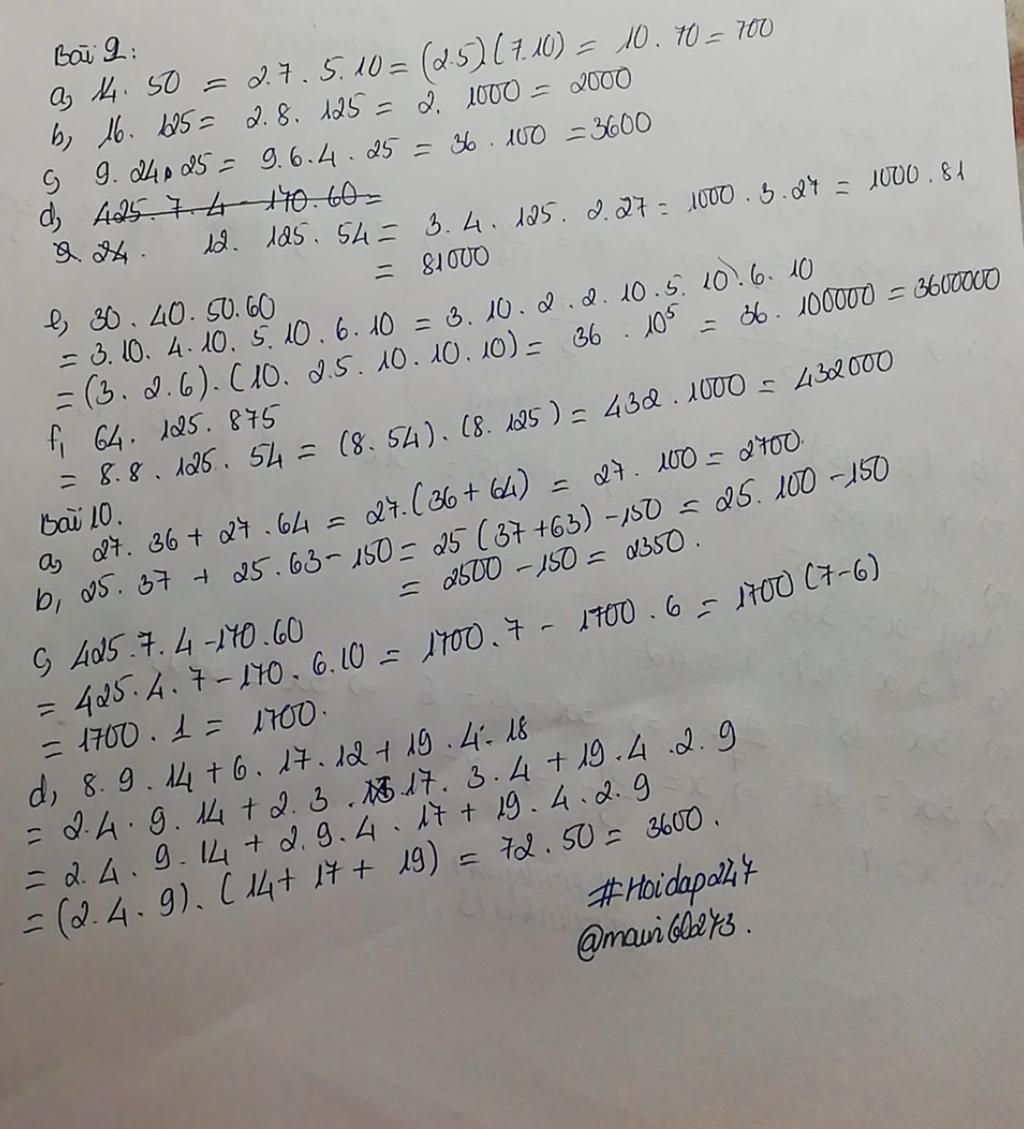 Bài 9:
a, 14. 50 = 2.7. 5.10 = (2.5).(7.10) = 10. 70 = 700
b, 16. 125 = 2. 8. 125 = 2. 1000 = 2000
c, 9. 24. 25 = 9.6.4. 25 = 36. 100 = 3600
d, 425.7.4 - 170.60 =
9. 24. 12. 125. 54 = 3. 4. 125. 2.27 = 1000. 3.27 = 1000.81
= 81000
e, 30. 40. 50. 60
= 3.10. 4.10. 5.10. 6.10 = 3.10. 2. 2. 10. 5. 10. 6. 10
= (3. 2.6). (10. 2.5. 10. 10. 10) = 36. 10⁵ = 36. 100000 = 3600000
f, 64. 125. 875
= 8.8. 125. 54 = (8. 54). (8. 125) = 432. 1000 = 432000
Bài 10.
a, 27. 36 + 27. 64 = 27.(36 + 64) = 27. 100 = 2700.
b, 25. 37 + 25. 63 - 150 = 25 (37 + 63) - 150 = 25. 100 - 150
= 2500 - 150 = 2350.
c, 425.7.4 - 170.60
= 425.4.7 - 170. 6.10 = 1700.7 - 1700. 6 = 1700 (7-6)
= 1700. 1 = 1700.
d, 8. 9. 14 + 6. 17. 12 + 19. 4. 18
= 2.4. 9. 14 + 2. 3. 17. 3. 4 + 19. 4. 2. 9
= 2. 4. 9. 14 + 2. 9. 4. 17 + 19. 4. 2. 9
= (2. 4. 9). (14 + 17 + 19) = 72. 50 = 3600.
#Hoidap247